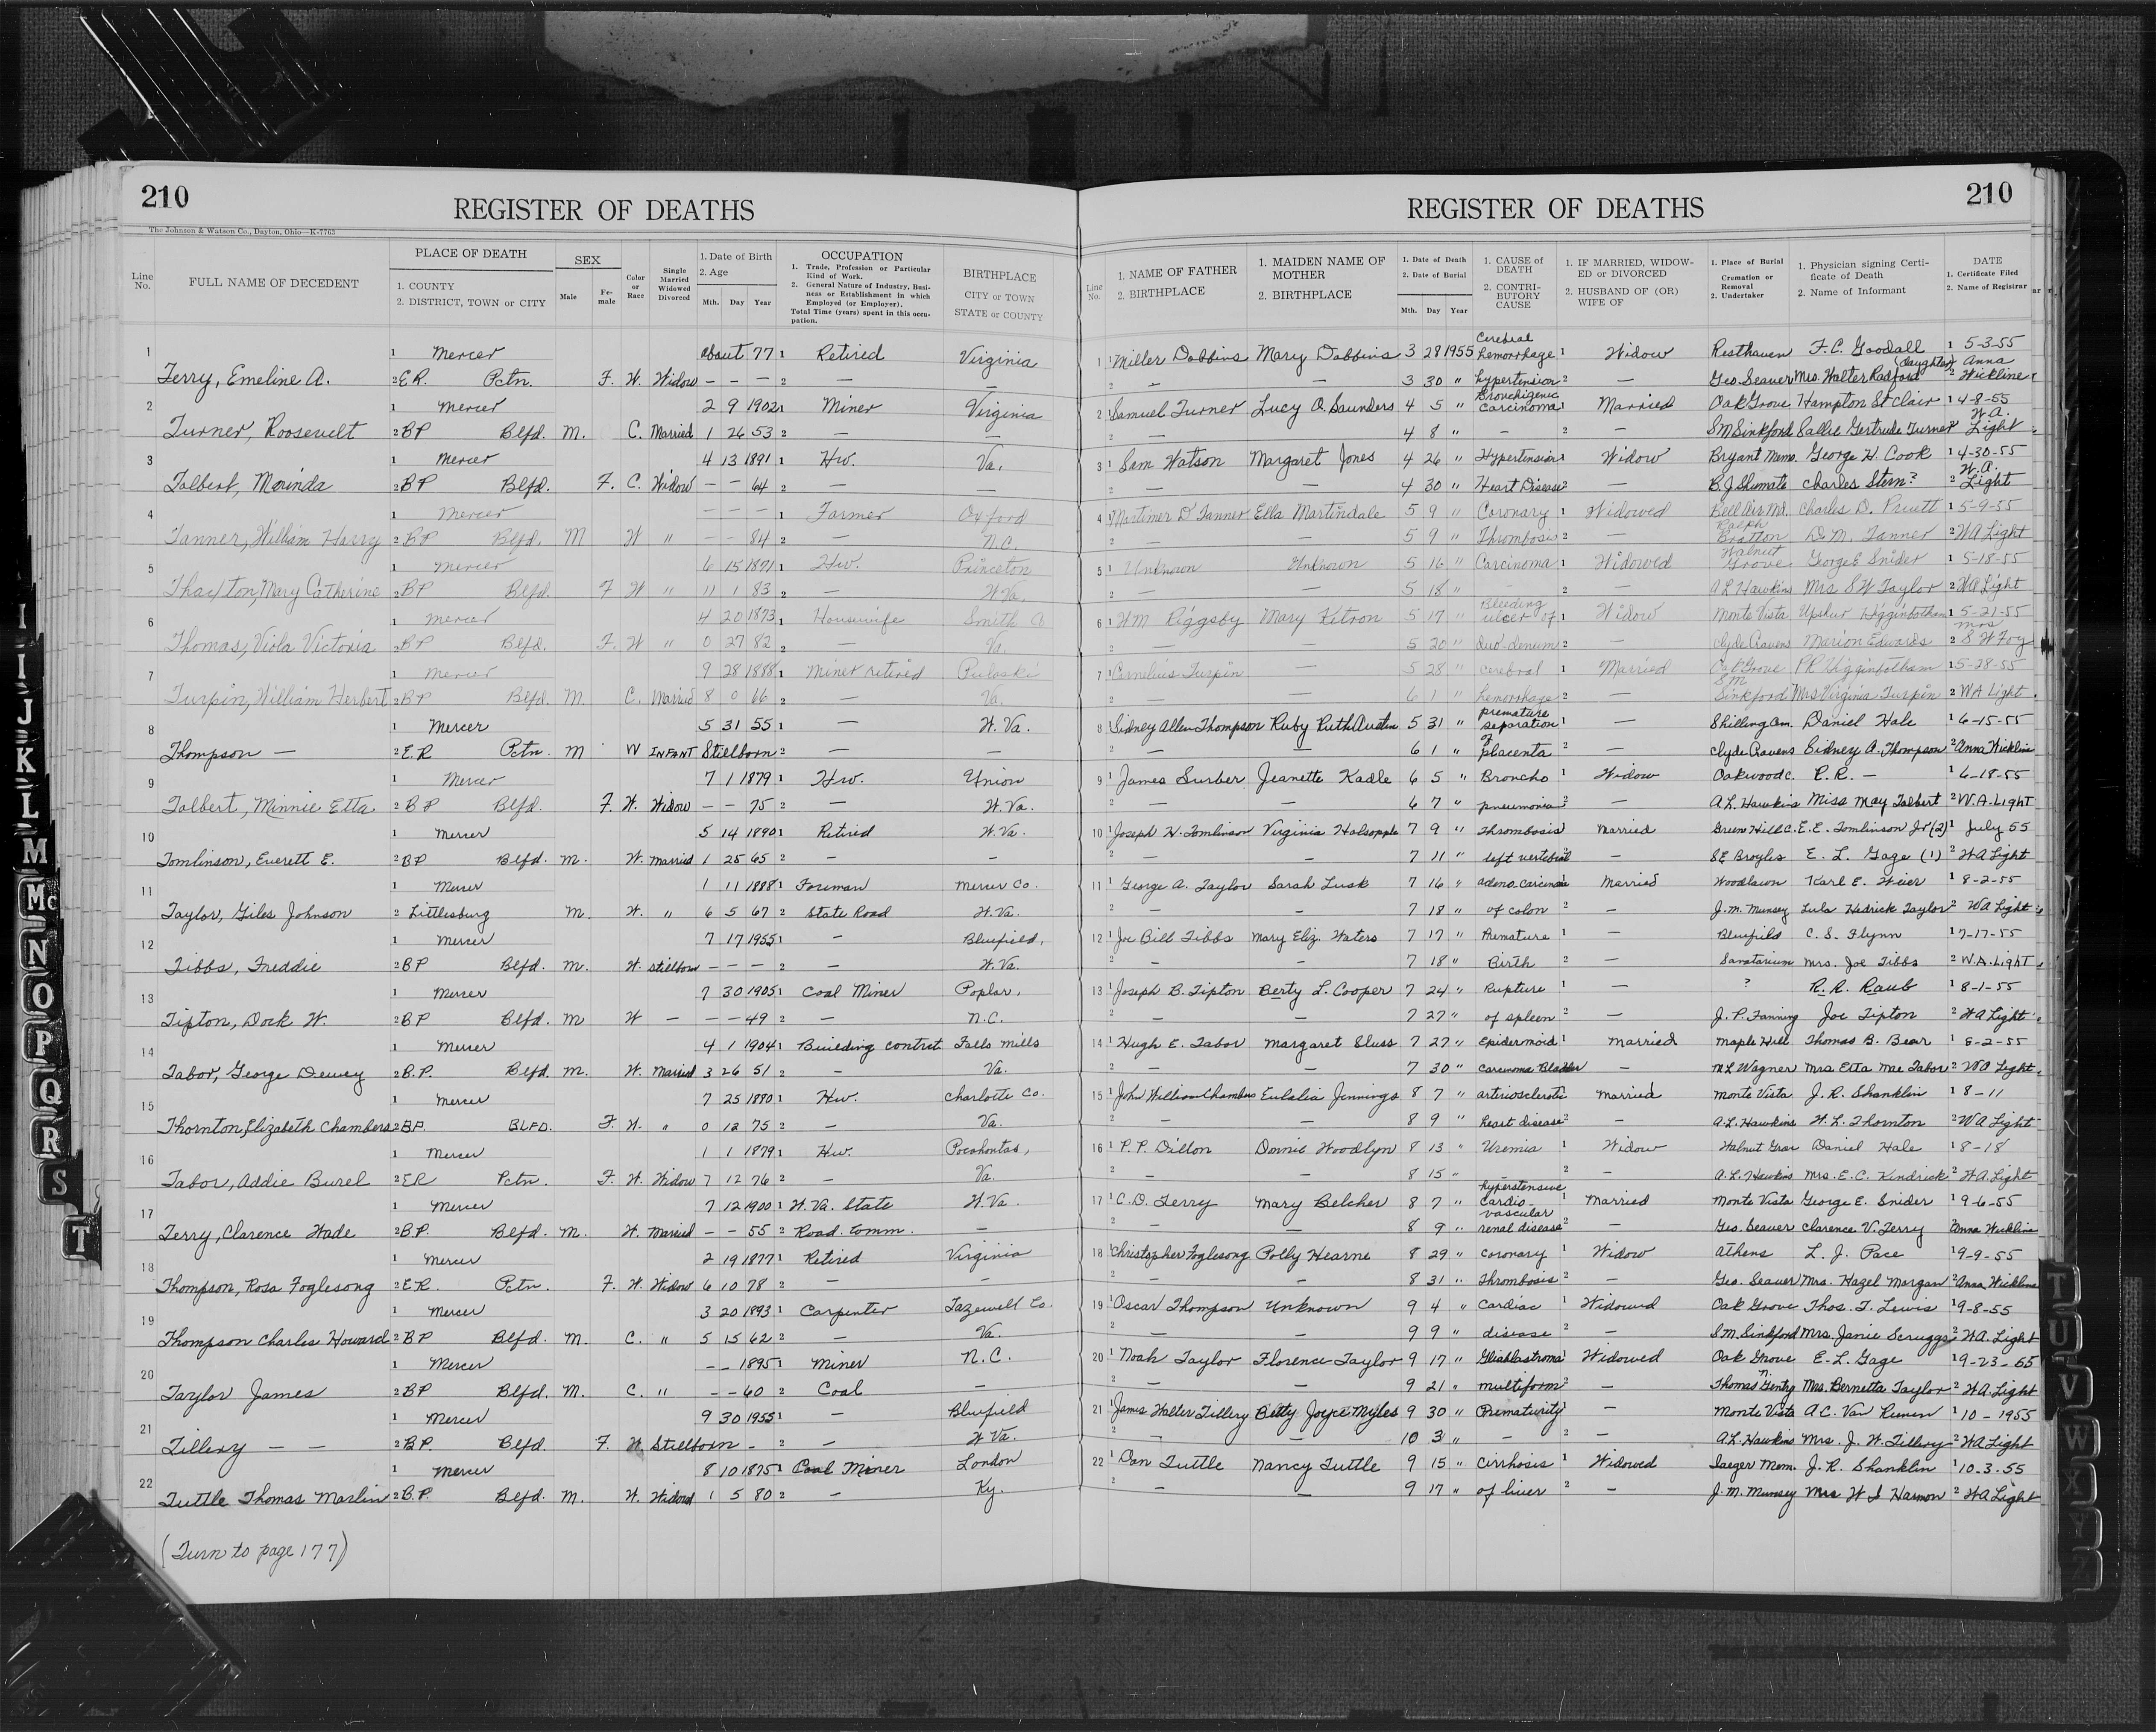 210
REGISTER OF DEATHS
The Johnson & Watson Co., Dayton, Ohio—K-7763
Line No.
FULL NAME OF DECEDENT
PLACE OF DEATH
1. COUNTY
2. DISTRICT, TOWN or CITY
SEX
Male
Fe-male
Color or Race
Single Married Widowed Divorced
1. Date of Birth
2. Age
Mth. Day Year
OCCUPATION
1. Trade, Profession or Particular Kind of Work.
2. General Nature of Industry, Business or Establishment in which Employed (or Employer).
Total Time (years) spent in this occupation.
BIRTHPLACE
CITY or TOWN
STATE or COUNTY
1 1 Mercer about 77 1 Retired Virginia
Terry, Emeline A. 2 E.R. Pctn. F. W. Widow — — — 2 — —
2 1 Mercer 2 9 1902 1 Miner Virginia
Turner, Roosevelt 2 BP Blfd. M. C. Married 1 26 53 2 — —
3 1 Mercer 4 13 1891 1 Hw. Va.
Talbert, Morinda 2 BP Blfd. F. C. Widow — — 64 2 — —
4 1 Mercer — — — 1 Farmer Oxford
Tanner, William Harry 2 BP Blfd. M W " — — 84 2 — N.C.
5 1 Mercer 6 15 1871 1 Hw. Princeton
Thaxton, Mary Catherine 2 BP Blfd. F W " 11 1 83 2 — W.Va.
6 1 Mercer 4 20 1873 1 Housewife Smith Co
Thomas, Viola Victoria 2 BP Blfd. F. W " 0 27 82 2 — Va.
7 1 Mercer 9 28 1888 1 Miner retired Pulaski
Turpin, William Herbert 2 BP Blfd. M. C. Married 8 0 66 2 — Va.
8 1 Mercer 5 31 55 1 — W. Va.
Thompson — 2 E.R Pctn. M W INFANT Stillborn 2 — —
9 1 Mercer 7 1 1879 1 Hw. Union
Talbert, Minnie Etta 2 BP Blfd. F. W. Widow — — 75 2 — W.Va.
10 1 Mercer 5 14 1890 1 Retired W. Va.
Tomlinson, Everett E. 2 BP Blfd. M. W. Married 1 25 65 2 — —
11 1 Mercer 1 11 1888 1 Foreman Mercer Co.
Taylor, Giles Johnson 2 Littlesburg M. W. " 6 5 67 2 State Road W.Va.
12 1 Mercer 7 17 1955 1 — Bluefield,
Tibbs, Freddie 2 BP Blfd. M. W. Stillborn — — — 2 — W.Va.
13 1 Mercer 7 30 1905 1 Coal Miner Poplar,
Tipton, Dock W. 2 BP Blfd. M W — — — 49 2 — N.C.
14 1 Mercer 4 1 1904 1 Building contrct Falls Mills
Tabor, George Dewey 2 B.P. Blfd. M. W. Married 3 26 51 2 — Va.
15 1 Mercer 7 25 1880 1 Hw. Charlotte Co.
Thornton, Elizabeth Chambers 2 B.P. BLFD. F. W. " 0 12 75 2 — Va.
16 1 Mercer 1 1 1879 1 Hw. Pocahontas,
Tabor, Addie Burel 2 ER Pctn. F. W. Widow 7 12 76 2 — Va.
17 1 Mercer 7 12 1900 1 W. Va. State W.Va
Terry, Clarence Wade 2 B.P. Blfd. M. W. Married — — 55 2 Road comm. —
18 1 Mercer 2 19 1877 1 Retired Virginia
Thompson, Rosa Foglesong 2 E.R. Pctn. F. W. Widow 6 10 78 2 — —
19 1 Mercer 3 20 1893 1 Carpenter Tazewell Co.
Thompson Charles Howard 2 BP Blfd. M. C. " 5 15 62 2 — Va.
20 1 Mercer — — 1895 1 Miner N.C.
Taylor James 2 BP Blfd. M. C. " — — 60 2 Coal —
21 1 Mercer 9 30 1955 1 — Bluefield
Tillery — — 2 B.P. Blfd. F. W Stillborn — 2 — W Va.
22 1 Mercer 8 10 1875 1 Coal Miner London
Tuttle Thomas Marlin 2 B.P. Blfd. M. W. Widowd 1 5 80 2 — Ky.
(Turn to page 177)
REGISTER OF DEATHS
210
Line No.
1. NAME OF FATHER
2. BIRTHPLACE
1. MAIDEN NAME OF MOTHER
2. BIRTHPLACE
1. Date of Death
2. Date of Burial
Mth. Day Year
1. CAUSE OF DEATH
2. CONTRIBUTORY CAUSE
1. IF MARRIED, WIDOWED or DIVORCED
2. HUSBAND OF (OR) WIFE OF
1. Place of Burial Cremation or Removal
2. Undertaker
1. Physician signing Certificate of Death
2. Name of Informant
DATE
1. Certificate Filed
2. Name of Registrar
1 1 Miller Dobbins Mary Dobbins 3 28 1955 Cerebral hemorrhage 1 Widow Resthaven F.C. Goodall 1 5-3-55
2 — — 3 30 " hypertension 2 — Geo. Seaver Mrs. Walter Radford (daughter) 2 Anna Wickline
2 1 Samuel Turner Lucy O. Saunders 4 5 " Bronchigenic Carcinoma 1 Married Oak Grove Hampton St Clair 1 4-8-55
2 — 4 8 " — 2 — S M Sinkford Sallie Gertrude Turner 2 W.A. Light
3 1 Sam Watson Margaret Jones 4 26 " Hypertension 1 Widow Bryant Mem. George H. Cook 1 4-30-55
2 — — 4 30 " Heart Disease 2 — B. J Shumate Charles Stern? 2 W.A. Light
4 1 Mortimer D Tanner Ella Martindale 5 9 " Coronary 1 Widowed Bell Air Charles D. Pruett 1 5-9-55
2 — — 5 9 " Thrombosis 2 — Ralph Bratton D. M. Tanner 2 WA Light
5 1 Unknown Unknown 5 16 " Carcinoma 1 Widowed Walnut Grove George E Snider 1 5-18-55
2 — — 5 18 " — 2 — A L Hawkins Mrs S W Taylor 2 WA Light
6 1 WM Riggsby Mary Kitron 5 17 " Bleeding ulcer of 1 Widow Monte Vista Upsher Higginbotham 1 5-21-55
2 — — 5 20 " duodenum 2 — Clyde Ravens Marion Edwards 2 mrs S W Foy
7 1 Cornelius Turpin — 5 28 " cerebral 1 Married Oak Grove PR Higginbotham 1 5-28-55
2 — — 6 1 " hemorrhage 2 — SM Sinkford Mrs Virginia Turpin 2 WA Light
8 1 Sidney Allen Thompson Ruby Ruth Austin 5 31 " premature separation 1 — Shilling Cem. Daniel Hale 1 6-15-55
2 — — 6 1 " of placenta 2 — Clyde Ravens Sidney A. Thompson 2 Anna Wickline
9 1 James Surber Jeanette Kadle 6 5 " Broncho 1 Widow Oakwood C. P.R. — 1 6-18-55
2 — — 6 7 " pneumonia 2 — A.L. Hawkins Miss May Talbert 2 W.A. Light
10 1 Joseph H. Tomlinson Virginia Holsopple 7 9 " Thrombosis Married Green Hill C. E.E. Tomlinson Jr (2) 1 July 55
2 — — 7 11 " left vertebral — S E Broyles E. L. Gage (1) 2 W.A Light
11 1 George A. Taylor Sarah Lusk 7 16 " adeno carcinoma Married Woodlawn Karl E. Weier 1 8-2-55
2 — — 7 18 " of colon 2 — J.M. Munsey Lula Hedrick Taylor 2 WA Light
12 1 Joe Bill Tibbs Mary Eliz. Waters 7 17 " Premature 1 — Bluefield C. S. Flynn 1 7-17-55
2 — — 7 18 " Birth 2 — Sanatarium Mrs. Joe Tibbs 2 W.A. Light
13 1 Joseph B. Tipton Berty L. Cooper 7 24 " Rupture 1 — ? R. R. Raub 1 8-1-55
2 — — 7 27 " of spleen 2 — J. P. Fanning Joe Tipton 2 WA Light
14 1 Hugh E. Tabor Margaret Sluss 7 27 " Epidermoid 1 Married Maple Hill Thomas B. Bear 1 8-2-55
2 — — 7 30 " carcinoma Bladder — M L Wagner Mrs Etta Mae Tabor 2 WA Light
15 1 John William Chambers Eulalia Jennings 8 7 " arteriosclerotic Married Monte Vista J. R. Shanklin 1 8-11
2 — — 8 9 " heart disease 2 — A.L. Hawkins W. L. Thornton 2 WA Light
16 1 P. P. Dillon Donnie Woodlyn 8 13 " Uremia 1 Widow Walnut Grov Daniel Hale 1 8-18
2 — — 8 15 " — 2 — A.L. Hawkins Mrs. E.C. Kindrick 2 WA. Light
17 1 C.D. Terry Mary Belcher 8 7 " hyperstensive cardio- 1 Married Monte Vista George E. Snider 1 9-6-55
2 — — 8 9 " vascular renal disease 2 — Geo. Seaver Clarence V. Terry 2 Anna Wickline
18 1 Christopher Foglesong Polly Hearne 8 29 " coronary 1 Widow Athens L. J. Pace 1 9-9-55
2 — — 8 31 " Thrombosis 2 — Geo. Seaver Mrs. Hazel Morgan 2 Anna Wickline
19 1 Oscar Thompson Unknown 9 4 " Cardiac 1 Widowed Oak Grove Thos. T. Lewis 1 9-8-55
2 — — 9 9 " disease 2 — S M. Sinkford Mrs. Janie Scruggs 2 WA. Light
20 1 Noah Taylor Florence Taylor 9 17 " Glioblastroma 1 Widowed Oak Grove E. L. Gage 1 9-23-55
2 — — 9 21 " multiform 2 — Thomas Gentry Mrs. Bernetta Taylor 2 WA. Light
21 1 James Walter Tillery Betty Joyce Myles 9 30 " Prematurity 1 — Monte Vista A C. Van 1 10-1955
2 — — 10 3 " — 2 — A.L. Hawkins Mrs. J. W. Tillery 2 WA Light
22 1 Dan Tuttle Nancy Tuttle 9 15 " Cirrhosis 1 Widowed Iaeger Mem. J. R. Shanklin 1 10.3.55
2 — — 9 17 " of liver 2 — J. M. Munsey Mrs W S Harmon 2 WA Light
I
J
K
L
M
Mc
N
O
P
Q
R
S
T
T
U
V
W
X
Y
Z